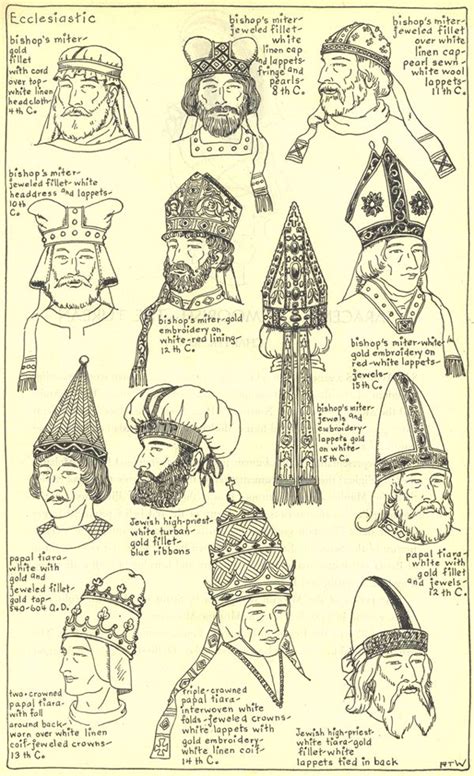 Ecclesiastic
bishop's miter-
gold
fillet
with cord
over top-
white linen
headcloth-
4th C.
bishop's miter-
jeweled fillet-
white
linen cap
and lappets-
fringe and
pearls-
8th C.
bishop's miter-
jeweled fillet
over white
linen cap-
pearl sewn-
white wool
lappets-
11th C.
bishop's miter-
jeweled fillet-white
headdress and lappets-
10th
C.
bishop's miter-gold
embroidery on
white-red lining-
12th C.
bishop's miter-white-
gold embroidery on
red-white lappets-
jewels-
15th C.
bishop's miter-
jewels and
embroidery-
lappets gold
on white-
15th C.
papal tiara-
white with
gold and
jeweled fillet-
gold top-
540-604 A.D.
Jewish high-priest-
white turban-
gold fillet-
blue ribbons
papal tiara-
white with
gold fillet
and jewels-
12th C.
two-crowned
papal tiara-
with fall
around back-
worn over white linen
coif-jeweled crowns-
13th C.
triple-crowned
papal tiara-
interwoven white
folds-jeweled crowns-
white lappets with
gold embroidery-
white linen coif-
14th C.
Jewish high-priest-
white tiara-gold
fillet-white
lappets tied in back
RTW